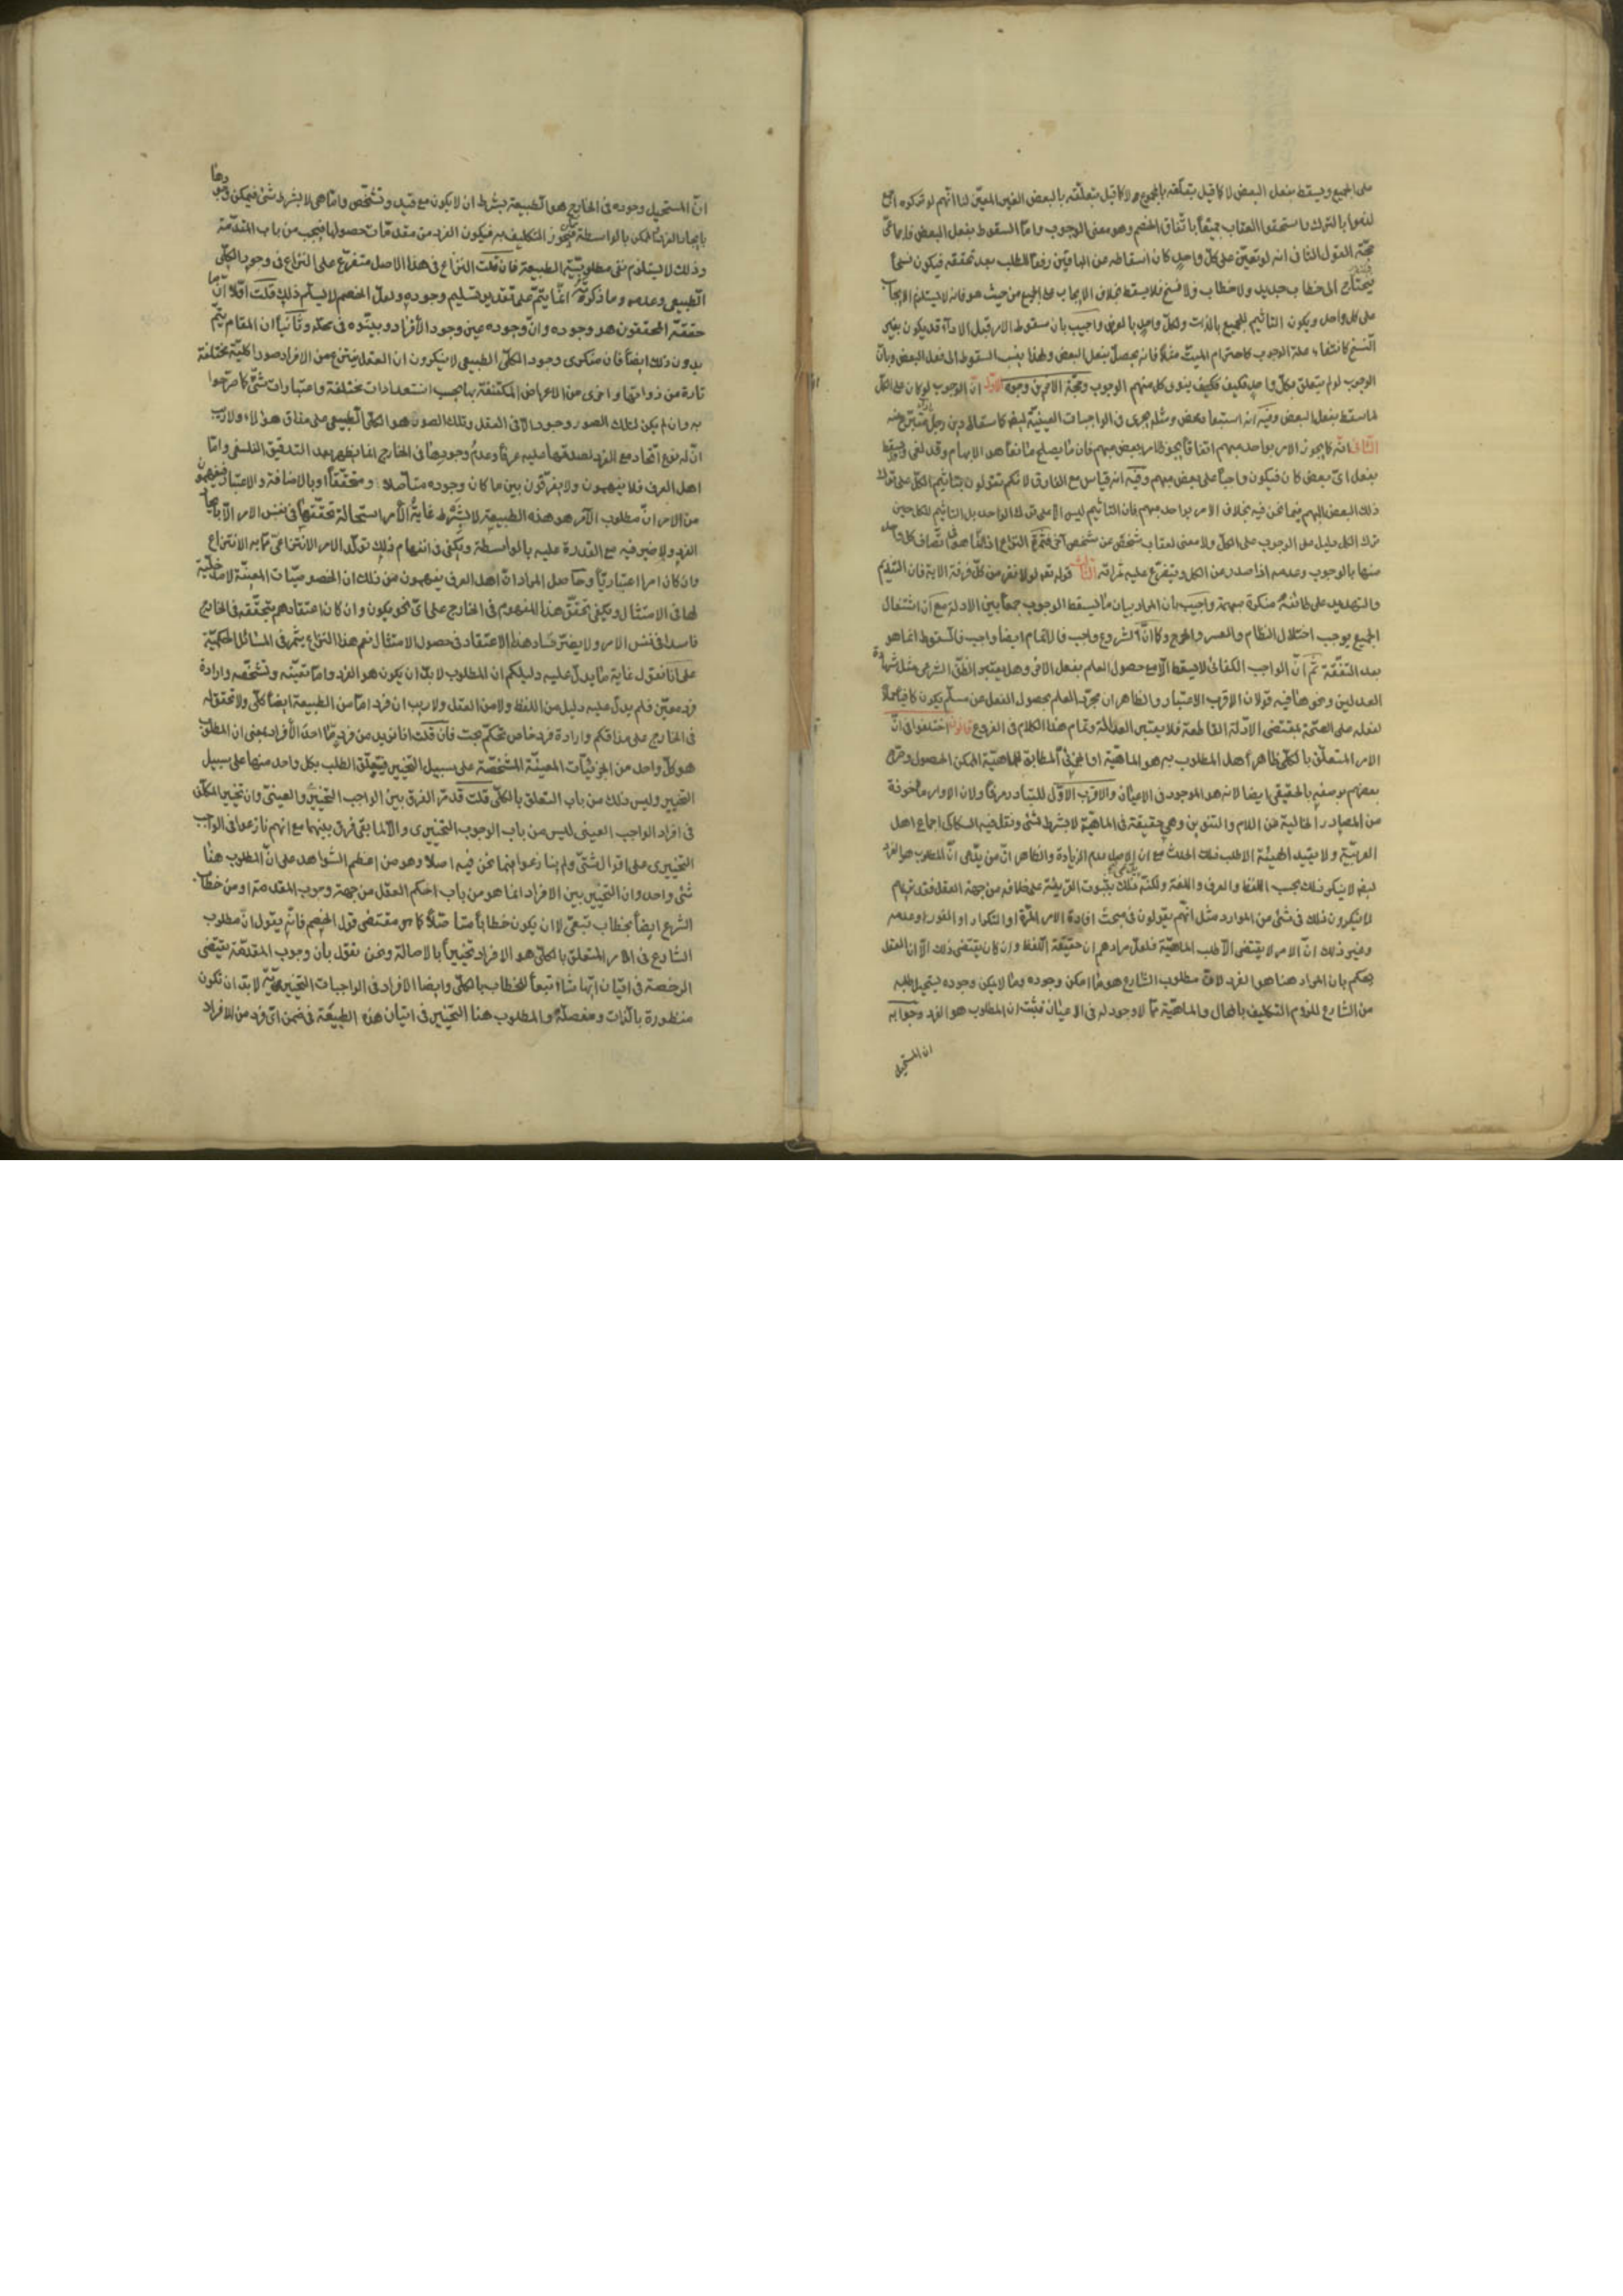 على الجميع ويسقط بفعل البعض لا كما قيل بتعلقه بالمجموع ولا كما قيل بتعلقه بالبعض الغير المعين لنا انهم لو تركوه اجمع
لذموا بالترك واستحقوا العقاب جميعا باتفاق الخصم وهو معنى الوجوب واما السقوط بفعل البعض فاجماعي
حجة القول الثاني انه لو تعين على كل واحد كان اسقاطه من الباقين رفعا للطلب بعد تحققه فيكون نسخا
فيحتاج الى خطاب جديد ولا خطاب ولا نسخ فلا يسقط بخلاف الايجاب على الجميع من حيث هو فانه لا يستلزم الايجاب
على كل واحد ويكون التأثيم للجميع بالذات ولكل واحد بالعرض واجيب بان سقوط الامر قبل الاداء قد يكون بغير
النسخ كانتفاء علة الوجوب كاحترام الميت مثلا فانه يحصل بفعل البعض ولهذا ينسب السقوط الى فعل البعض وبان
الوجوب لو لم يتعلق بكل واحد فكيف ينوى كل منهم الوجوب وحجة الاخرين وجوه الاول ان الوجوب لو كان على الكل
لما سقط بفعل البعض وفيه انه استبعاد محض ومثله يجري في الواجبات العينية ايضا كاسقاط دين رجل باداء متبرع عنه
الثاني انه كما يجوز الامر بواحد مبهم اتفاقا يجوز امر بعض مبهم فان ما يصلح مانعا هو الابهام وقد لغى ويسقط
بفعل اي بعض كان فيكون واجبا على بعض مبهم وفيه انه قياس مع الفارق لانكم تقولون بتأثيم الكل على ترك
ذلك البعض المبهم فيما نحن فيه بخلاف الامر بواحد مبهم فان التأثيم ليس الا على ترك الواحد بل التأثيم للكل حين
ترك الكل دليل على الوجوب على الكل ولا معنى لعقاب شخص عن شخص آخر فثمرة النزاع انما هو في اتصاف كل واحد
منها بالوجوب وعدمه اذا صدر عن الكل ويتفرع عليه ثمراته الثالث قوله تعالى فلولا نفر من كل فرقة الآية فان التنديم
والتهديد على طائفة منكرة مبهمة واجيب بان المراد بيان ما يسقط الوجوب جمعا بين الادلة مع ان اشتغال
الجميع يوجب اختلال النظام والعسر والحرج وكما ان الشروع واجب فالاتمام ايضا واجب فالسقوط انما هو
بعد التفقه ثم ان الواجب الكفائي لا يسقط الا مع حصول العلم بفعل الاخر وهل يعتبر الظن الشرعي مثل شهادة
العدلين ونحوها فيه قولان الاقرب الاعتبار والظاهر ان مجرد العلم بحصول الفعل عن مسلم يكون كافيا حملا
لفعله على الصحة بمقتضى الادلة القاطعة فلا يعتبر العدالة وتمام هذا الكلام في الفروع قانون اختلفوا في ان
الامر المتعلق بالكلي ظاهرا هل المطلوب به هو الماهية او الجزئي المطابق للماهية الممكن الحصول وصرح
بعضهم بوصفه بالحقيقي ايضا لانه هو الموجود في الاعيان والاقرب الاول للتبادر عرفا ولان الاوامر مأخوذة
من المصادر الخالية عن اللام والتنوين وهي حقيقة في الماهية لا بشرط شيء ونقل فيه السكاكي اجماع اهل
العربية ولا يفيد الهيئة الا طلب ذلك الحدث مع ان الاصل عدم الزيادة والظاهر ان من يدعي ان المطلوب هو الفرد
ايضا لا ينكر ذلك بحسب اللفظ والعرف واللغة ولكنه يدعي ذلك بثبوت القرينة على خلافه من جهة العقل فقد تراهم
لا ينكرون ذلك في شيء من الموارد مثل انهم يقولون في مبحث افادة الامر المرة او التكرار او الفور وعدمه
وغير ذلك ان الامر لا يقتضي الا طلب الماهية فلعل مرادهم ان حقيقة اللفظ وان كان يقتضي ذلك الا ان العقل
يحكم بان المراد هنا هو الفرد لان مطلوب الشارع هو ما امكن وجوده وما لا يمكن وجوده يستحيل طلبه
من الشارع للزوم التكليف بالمحال والماهية مما لا وجود له في الاعيان فثبت ان المطلوب هو الفرد وجوابه
ان المستحيل
ان المستحيل وجوده في الخارج هو الطبيعة بشرط ان لا يكون مع قيد وتشخص واما هي لا بشرط شيء فيمكن وجودها
بايجاد الفرد والممكن بالواسطة يجوز التكليف به فيكون الفرد من مقدمات حصولها فيجب من باب المقدمة
وذلك لا يستلزم نفي مطلوبية الطبيعة فان قلت النزاع في هذا الاصل متفرع على النزاع في وجود الكلي
الطبيعي وعدمه وما ذكرته انما يتم على تقدير تسليم وجوده ولعل الخصم لا يسلم ذلك قلت اولا ان ما
حققه المحققون هو وجوده وان وجوده عين وجود الافراد وبينوه في محله وثانيا ان المقام يتم
بدون ذلك ايضا فان منكري وجود الكلي الطبيعي لا ينكرون ان العقل ينتزع من الافراد صورا كلية مختلفة
تارة من ذواتها واخرى من الاعراض المكتنفة بها بحسب استعدادات مختلفة واعتبارات شتى كما صرحوا
به وان لم يكن لتلك الصور وجود الا في العقل وتلك الصورة هو الكلي الطبيعي على مذاق هؤلاء ولا ريب
ان له نوع اتحاد مع الفرد لصدقها عليه عرفا وعدم وجودها في الخارج انما يظهر بعد التدقيق الفلسفي واما
اهل العرف فلا يفهمون ولا يفرقون بين ما كان وجوده متأصلا ومتحققا او بالاضافة والاعتبار فيفهمون
من الامر ان مطلوب الآمر هو هذه الطبيعة لا بشرط غاية الامر استحالة تحققها في نفس الامر الا بايجاد
الفرد ولا ضير فيه مع القدرة عليه بالواسطة ويكفي في انفهام ذلك تولد الامر الانتزاعي مما به الانتزاع
وان كان امرا اعتباريا وحاصل المراد ان اهل العرف يفهمون من ذلك ان الخصوصيات المعينة لا مدخلية
لها في الامتثال ويكفي تحقق هذا المفهوم في الخارج على اي نحو يكون وان كان اعتقادهم بتحققه في الخارج
فاسدا في نفس الامر ولا يضر فساد هذا الاعتقاد في حصول الامتثال نعم هذا النزاع يثمر في المسائل الحكمية
على انا نقول غاية ما يدل عليه دليلكم ان المطلوب لا بد ان يكون هو الفرد واما تعينه وتشخصه وارادة
فرد معين فلم يدل عليه دليل من اللفظ ولا من العقل ولا ريب ان فردا ما من الطبيعة ايضا كلي ولا تحقق له
في الخارج على مذاقكم وارادة فرد خاص تحكم بحت فان قلت انا نريد من فرد ما احد الافراد بمعنى ان المطلوب
هو كل واحد من الجزئيات المعينة المشخصة على سبيل التخيير فيتعلق الطلب بكل واحد منها على سبيل
التخيير وليس ذلك من باب التعلق بالكلي قلت قد مر الفرق بين الواجب التخييري والعيني وان تخيير المكلف
في افراد الواجب العيني ليس من باب الوجوب التخييري والا لما بقي فرق بينهما مع انهم نازعوا في الواجب
التخييري على اقوال شتى ولم ينازعوا فيما نحن فيه اصلا وهو من اعظم الشواهد على ان المطلوب هنا
شيء واحد وان التخيير بين الافراد انما هو من باب احكم العقل من جهة وجوب المقدمة او من خطاب
الشرع ايضا بخطاب تبعي لا ان يكون خطابا متأصلا كما هو مقتضى قول الخصم فانه يقول ان مطلوب
الشارع في الامر المتعلق بالكلي هو الافراد تخييرا بالاصالة ونحن نقول بان وجوب المقدمة يقتضي
الرخصة في اتيان ايها شاء تبعا للخطاب بالكلي وايضا الافراد في الواجبات التخييرية لا بد ان تكون
منظورة بالذات ومفصلة والمطلوب هنا التخيير في اتيان هذه الطبيعة في ضمن اي فرد من الافراد